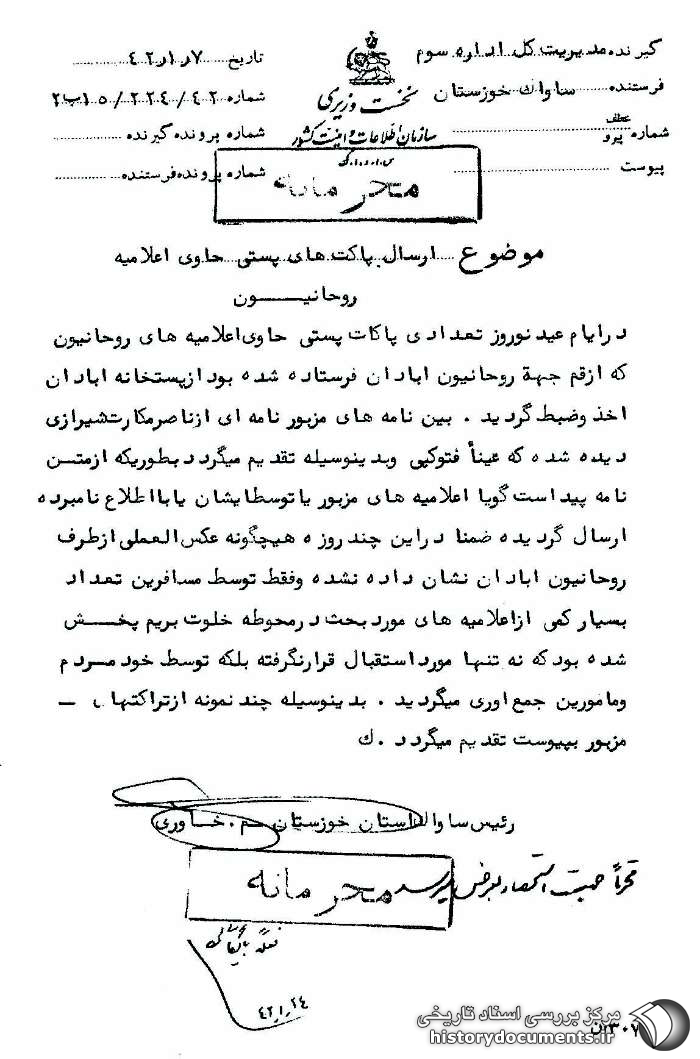 گیرنده مدیریت کل اداره سوم
فرستنده ساواک خوزستان
شماره عطف پیرو
پیوست
نخست وزیری
سازمان اطلاعات و امنیت کشور
س.ا.و.ا.ک
تاریخ ۷ر۱ر۴۲
شماره
شماره پرونده گیرنده
شماره پرونده فرستنده
محرمانه
موضوع ارسال پاکت های پستی حاوی اعلامیه
روحانیـــون
درایام عید نوروز تعدادی پاکات پستی حاوی اعلامیه های روحانیون
که ازقم جهة روحانیون ابادان فرستاده شده بود ازپستخانه ابادان
اخذ وضبط گردید . بین نامه های مزبور نامه ای ازناصر مکارت شیرازی
دیده شده که عیناً فتوکپی وبدینوسیله تقدیم میگردد بطوریکه ازمتـن
نامه پیداست گویا اعلامیه های مزبور یا توسط ایشان یا بااطلاع نامبرده
ارسال گردیده ضمنا دراین چند روزه هیچگونه عکس العملی ازطرف
روحانیون ابادان نشان داده نشده وفقط توسط مسافرین تعداد
بسیار کمی ازاعلامیه های مورد بحث درمحوطه خلوت بریم پخـش
شده بود که نه تنها مورد استقبال قرارنگرفته بلکه توسط خود مـردم
ومامورین جمع اوری میگردید . بدینوسیله چند نمونه ازتراکتهای ـ
مزبور بپیوست تقدیم میگردد . ک
رئیس ساواک استان خوزستان ـ م . خـاوری
محرمانه
جهت استحضار بعرض میرسد
۴۲ر۱ر۲۴
مرکز بررسی اسناد تاریخی
historydocuments.ir